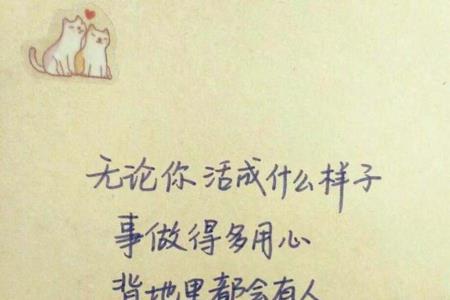 无论你活成什么样子
事做得多用心
背地里都会有人